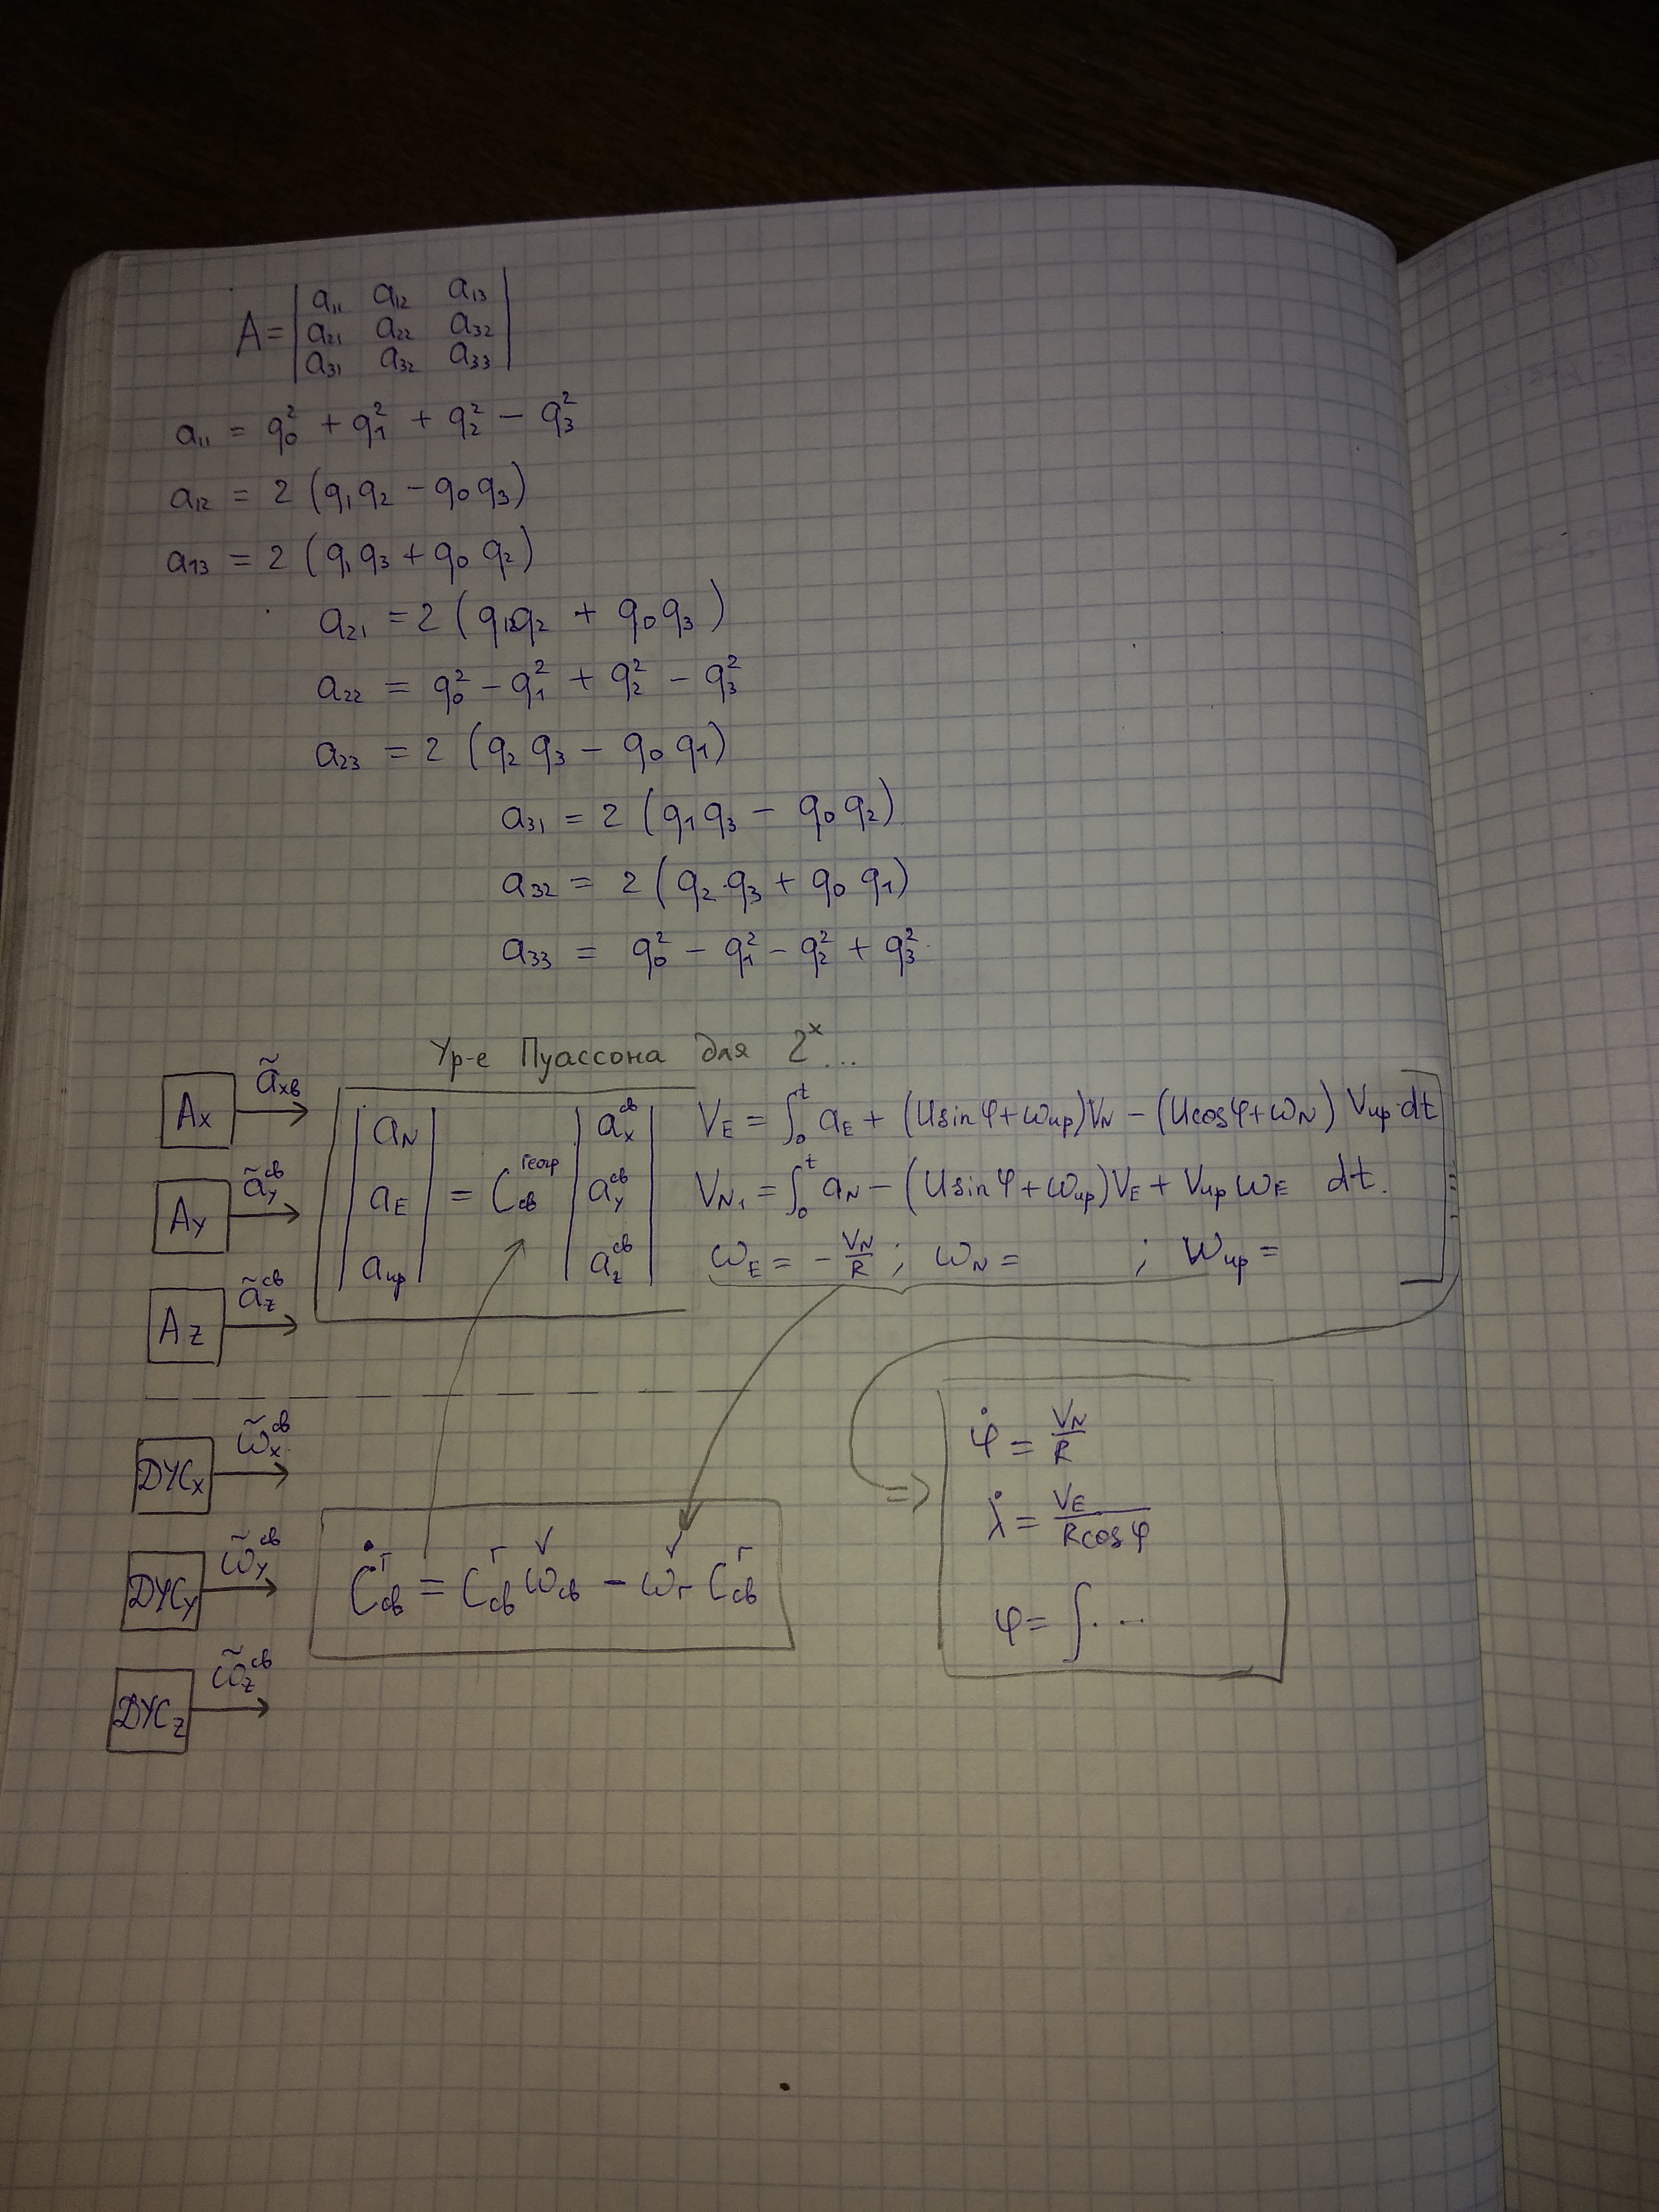 A = | a₁₁ a₁₂ a₁₃ |
| a₂₁ a₂₂ a₃₂ |
| a₃₁ a₃₂ a₃₃ |
a₁₁ = q₀² + q₁² + q₂² − q₃²
a₁₂ = 2 (q₁q₂ − q₀q₃)
a₁₃ = 2 (q₁q₃ + q₀q₂)
a₂₁ = 2 (q₁q₂ + q₀q₃)
a₂₂ = q₀² − q₁² + q₂² − q₃²
a₂₃ = 2 (q₂q₃ − q₀q₁)
a₃₁ = 2 (q₁q₃ − q₀q₂)
a₃₂ = 2 (q₂·q₃ + q₀q₁)
a₃₃ = q₀² − q₁² − q₂² + q₃²
Ур-е Пуассона для 2ˣ...
Aₓ ãₓв
A_Y ã_Y^св
A_Z ã_Z^св
| a_N | = C_св^геогр | a_x^св |
| a_E | | a_y^св |
| a_up | | a_z^св |
V_E = ∫₀ᵗ a_E + (U sin φ + ω_up)V_N − (U cos φ + ω_N) V_up·dt
V_N₁ = ∫₀ᵗ a_N − (U sin φ + ω_up)V_E + V_up ω_E dt.
ω_E = − V_N/R ; ω_N = ; ω_up =
ДУС_X ω̃_x^св
ДУС_Y ω̃_y^св
ДУС_Z ω̃_z^св
Ċ_св^г = C_св^г ω̌_св − ω̌_г C_св^г
=> φ̇ = V_N/R
λ̇ = V_E/(R cos φ)
φ = ∫...